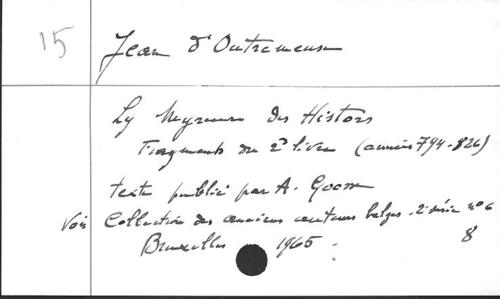 15
Jean d'Outremeuse
Ly Myreur des Histors
Fragments du 2e livre (années 794-826)
texte publié par A. Goosse
Voir Collection des anciens auteurs belges - 2e série n° 6
Bruxelles 1965. 8